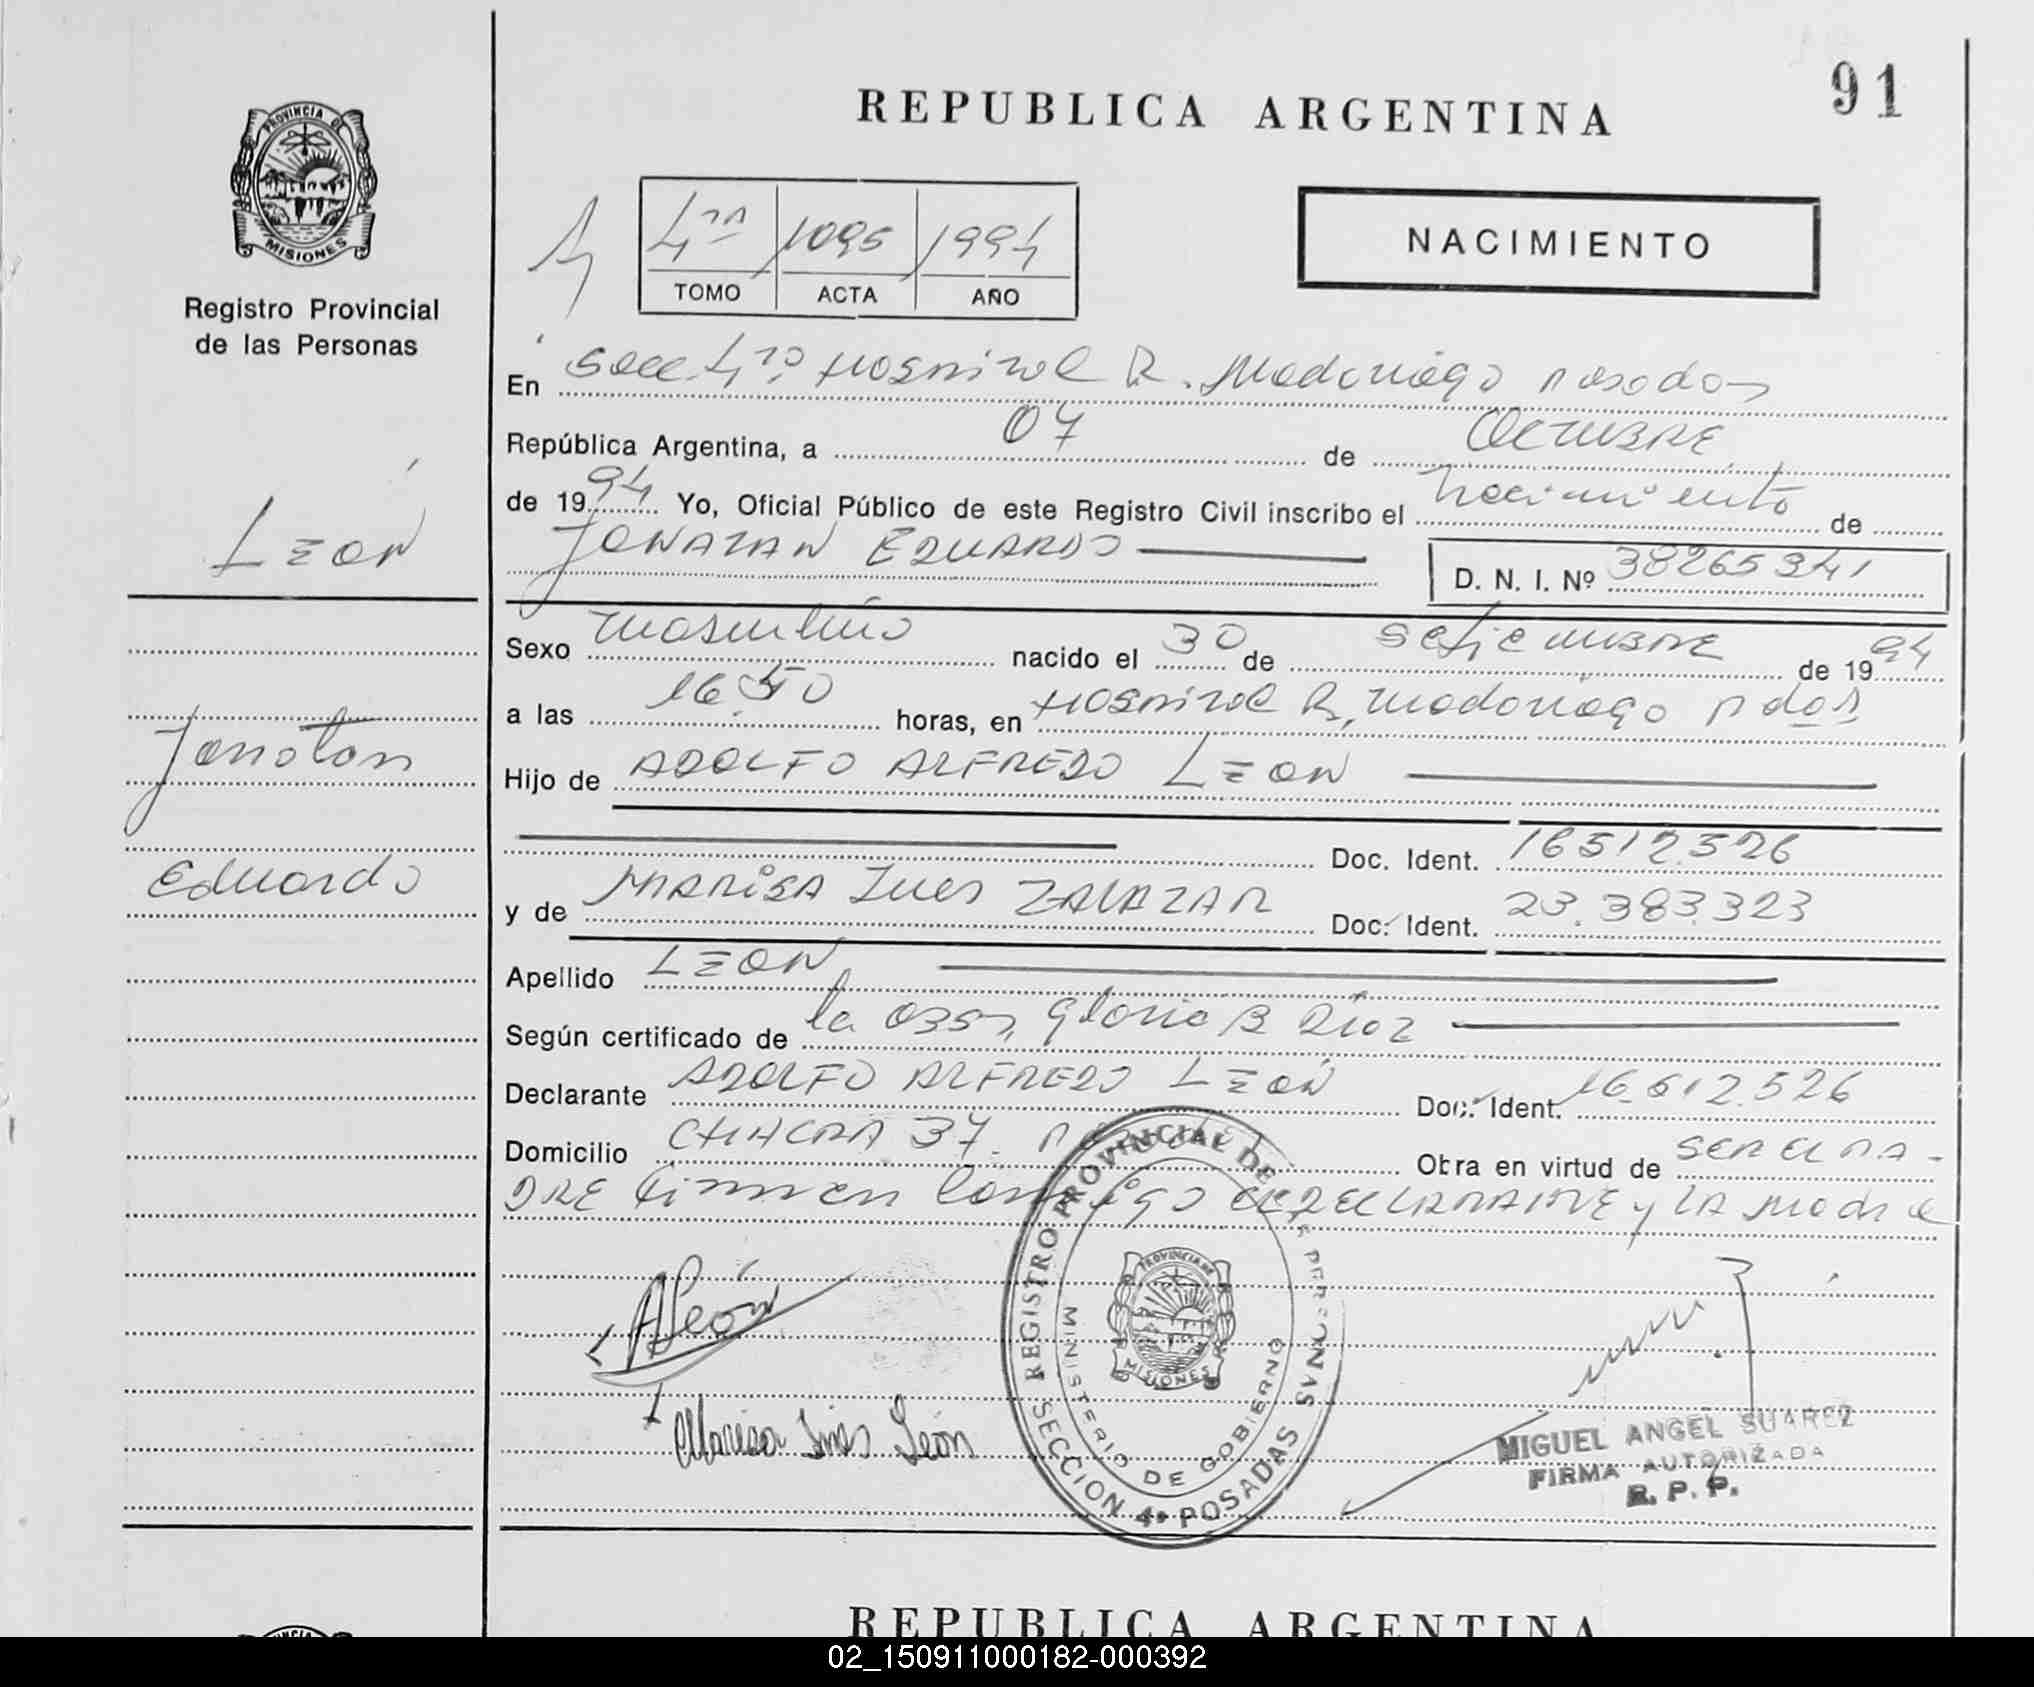 91
REPUBLICA ARGENTINA
PROVINCIA DE
MISIONES
Registro Provincial
de las Personas
4ta 1095 1994
TOMO ACTA AÑO
NACIMIENTO
En Secc 4ta Hospital R. Madariaga Posadas
República Argentina, a 07 de Octubre
de 1994 Yo, Oficial Público de este Registro Civil inscribo el Nacimiento de
León
JONATAN EDUARDO
D. N. I. Nº 38265341
Sexo masculino nacido el 30 de setiembre de 1994
a las 16.50 horas, en Hospital R. Madariaga Pdas
Jonatan
Hijo de ADOLFO ALFREDO LEON
Doc. Ident. 16512.526
Eduardo
y de MARISA Ines ZALAZAR Doc. Ident. 23.383.323
Apellido LEON
Según certificado de la Obst. Gloria B Diaz
Declarante ADOLFO ALFREDO LEÓN Doc. Ident. 16.512.526
Domicilio CHACRA 37. Posadas Obra en virtud de SER EL PA-
DRE firman conmigo el DECLARANTE y LA Madre
ALeón
Marisa Ines León
REGISTRO PROVINCIAL DE LAS PERSONAS
MINISTERIO DE GOBIERNO
PROVINCIA DE
MISIONES
SECCION 4ª POSADAS
MIGUEL ANGEL SUAREZ
FIRMA AUTORIZADA
R. P. P.
REPUBLICA ARGENTINA
02_150911000182-000392